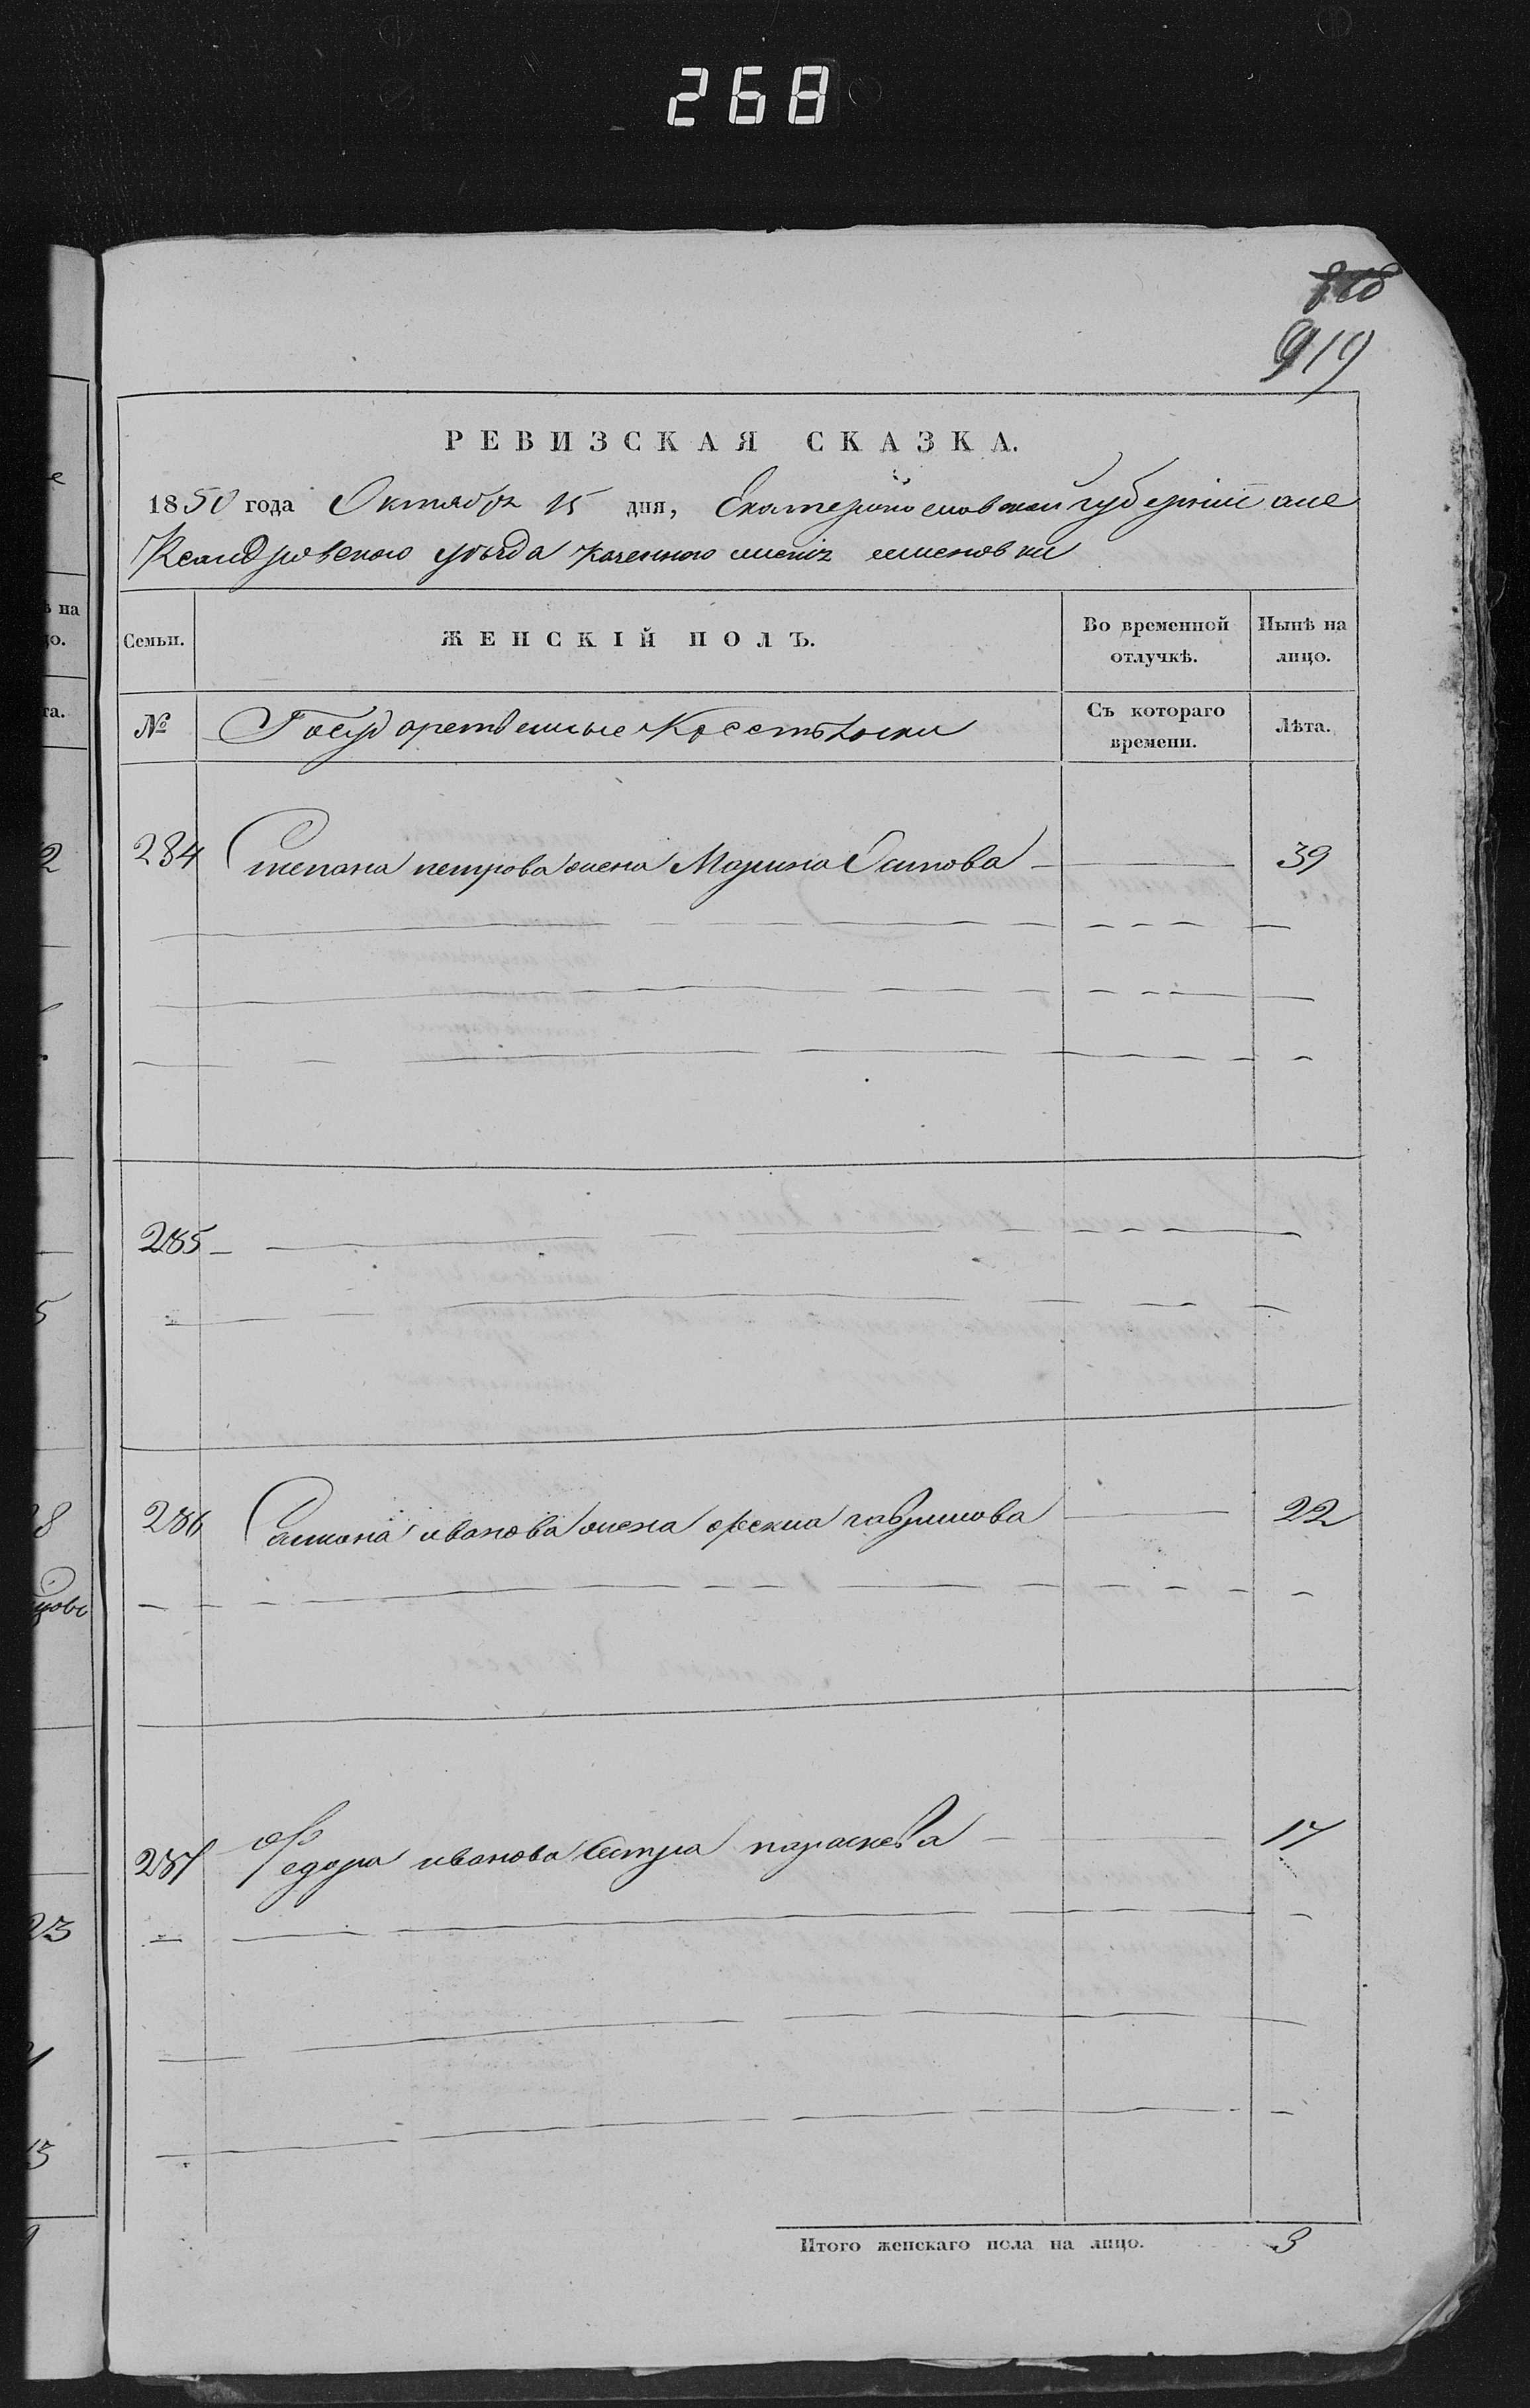 268
919
РЕВИЗСКАЯ СКАЗКА.
1850 года Октября 15 дня, Екатеринославской губернии але
Ксандровского уѣзда казенного имения
Семьи.
ЖЕНСКІЙ ПОЛЪ.
Во временной отлучкѣ.
Нынѣ на лицо.
№
Государственные Крестьянки
Съ котораго времени.
Лѣта.
284 Степана петрова жена Марина Осипова — 39
285
286 Самиона иванова жена гаврилова — 22
287 Федора иванова сестра параскева — 17
Итого женскаго пола на лицо. 3